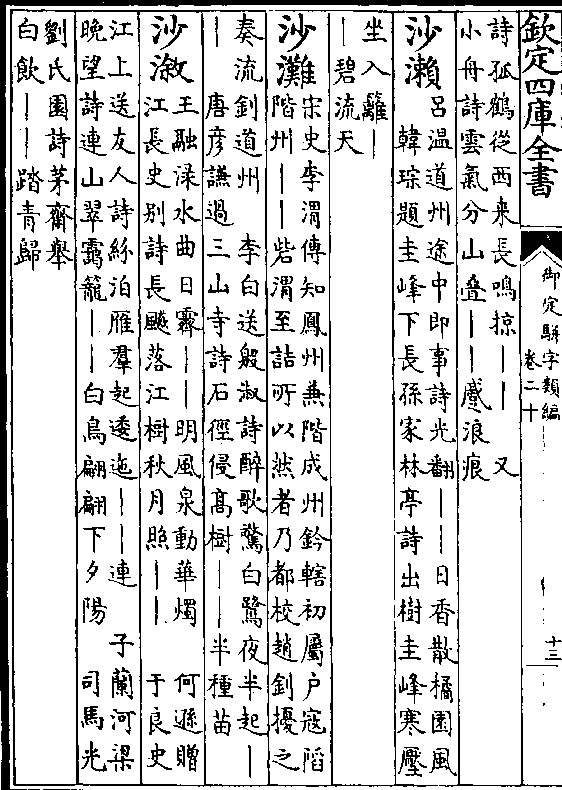 欽定四庫全書
御定駢字類編
卷二十
十三
詩孤鶴從西来長鳴掠｜｜　又
小舟詩雲氣分山疊｜｜蹙浪痕
沙瀨
呂温道州途中即事詩光翻｜｜日香散橘園風
韓琮題圭峰下長孫家林亭詩出樹圭峰寒壓
坐入籬｜
｜碧流天
沙灘
宋史李渭傳知鳳州兼階成州鈐轄初屬户寇䧟
階州｜｜砦渭至詰所以然者乃都校趙釗擾之
奏流釗道州　李白送殷淑詩醉歌驚白鷺夜半起｜
｜　唐彦謙過三山寺詩石徑侵髙樹｜｜半種苗
沙漵
王融渌水曲日霽｜｜明風泉動華燭　何遜贈
江長史别詩長飈落江樹秋月照｜｜　于良史
江上送友人詩紛泊雁羣起逶迤｜｜連　子蘭河梁
晚望詩連山翠靄籠｜｜白鳥翩翩下夕陽　司馬光
劉氏園詩茅齋舉
白飲｜｜踏青歸